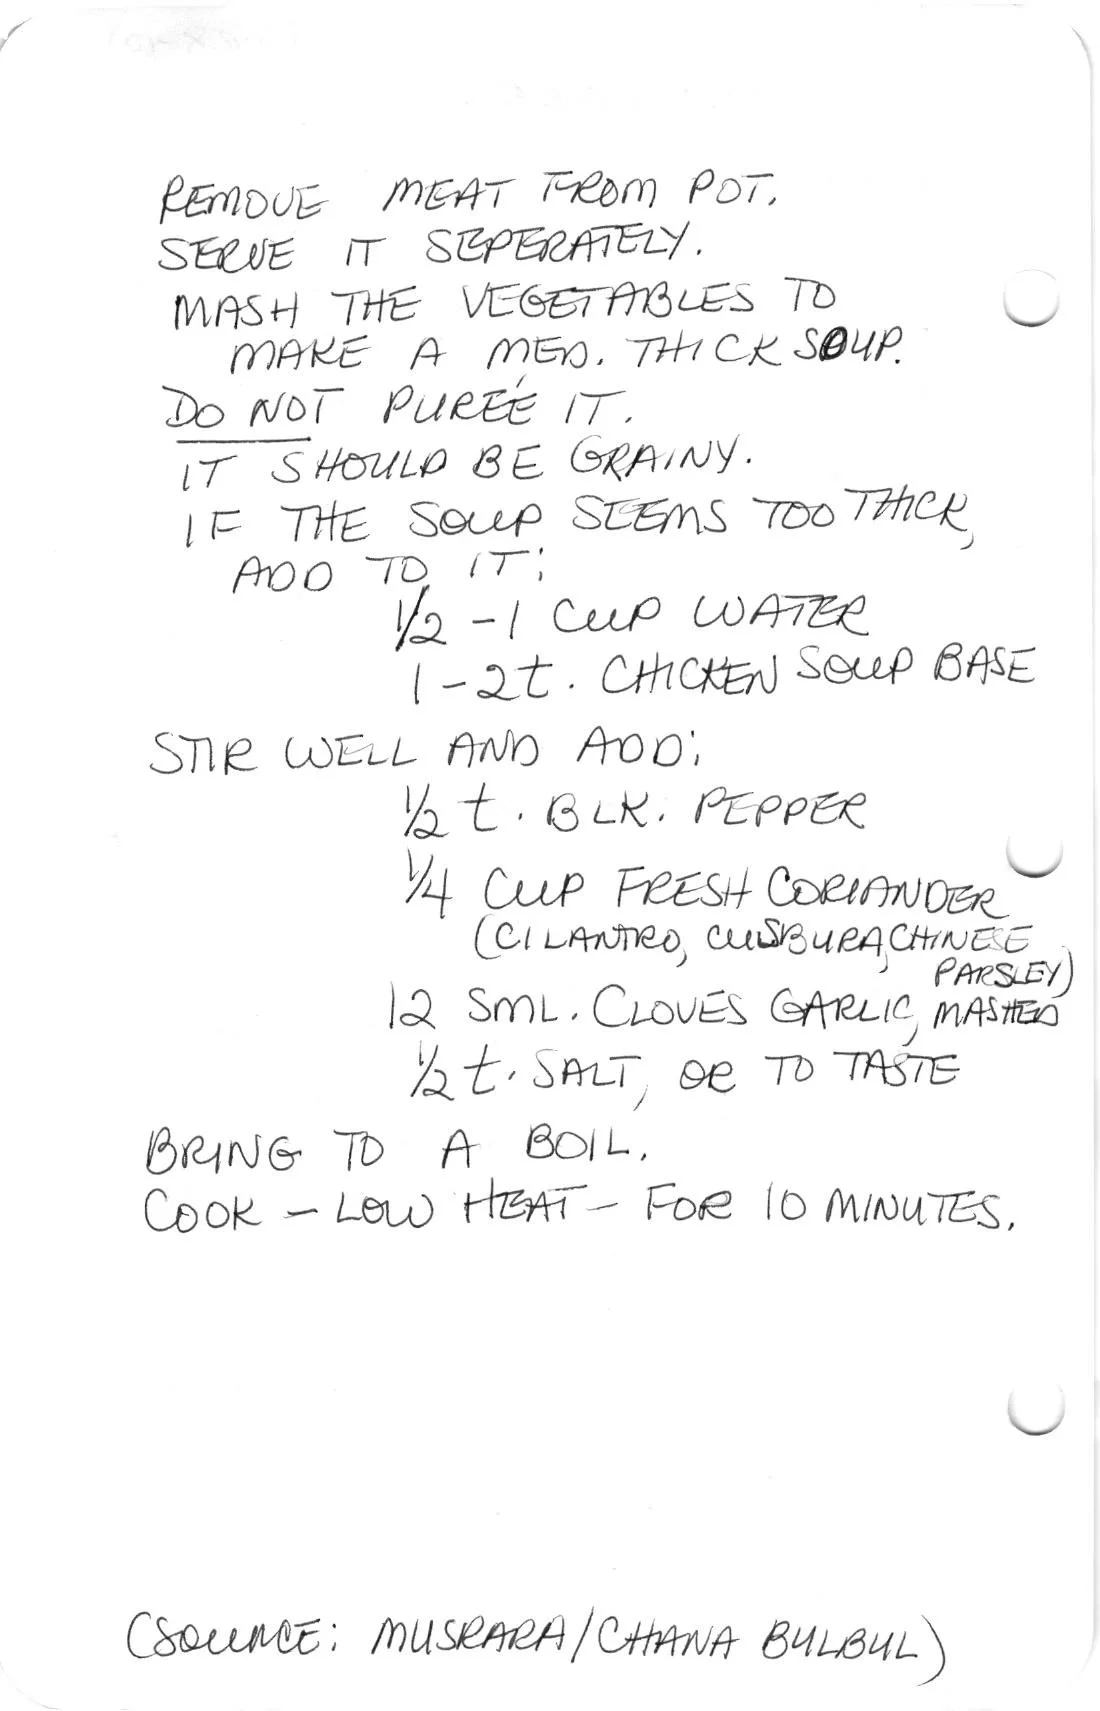 REMOVE MEAT FROM POT.
SERVE IT SEPERATELY.
MASH THE VEGETABLES TO
MAKE A MED. THICK SOUP.
DO NOT PUREÉ IT.
IT SHOULD BE GRAINY.
IF THE SOUP SEEMS TOO THICK,
ADD TO IT:
1/2 - 1 CUP WATER
1 - 2 t. CHICKEN SOUP BASE
STIR WELL AND ADD:
1/2 t. BLK. PEPPER
1/4 CUP FRESH CORIANDER
(CILANTRO, CUSBURA, CHINESE
PARSLEY)
12 SML. CLOVES GARLIC, MASHED
1/2 t. SALT, OR TO TASTE
BRING TO A BOIL.
COOK - LOW HEAT - FOR 10 MINUTES.
(SOURCE: MUSRARA/CHANA BULBUL)